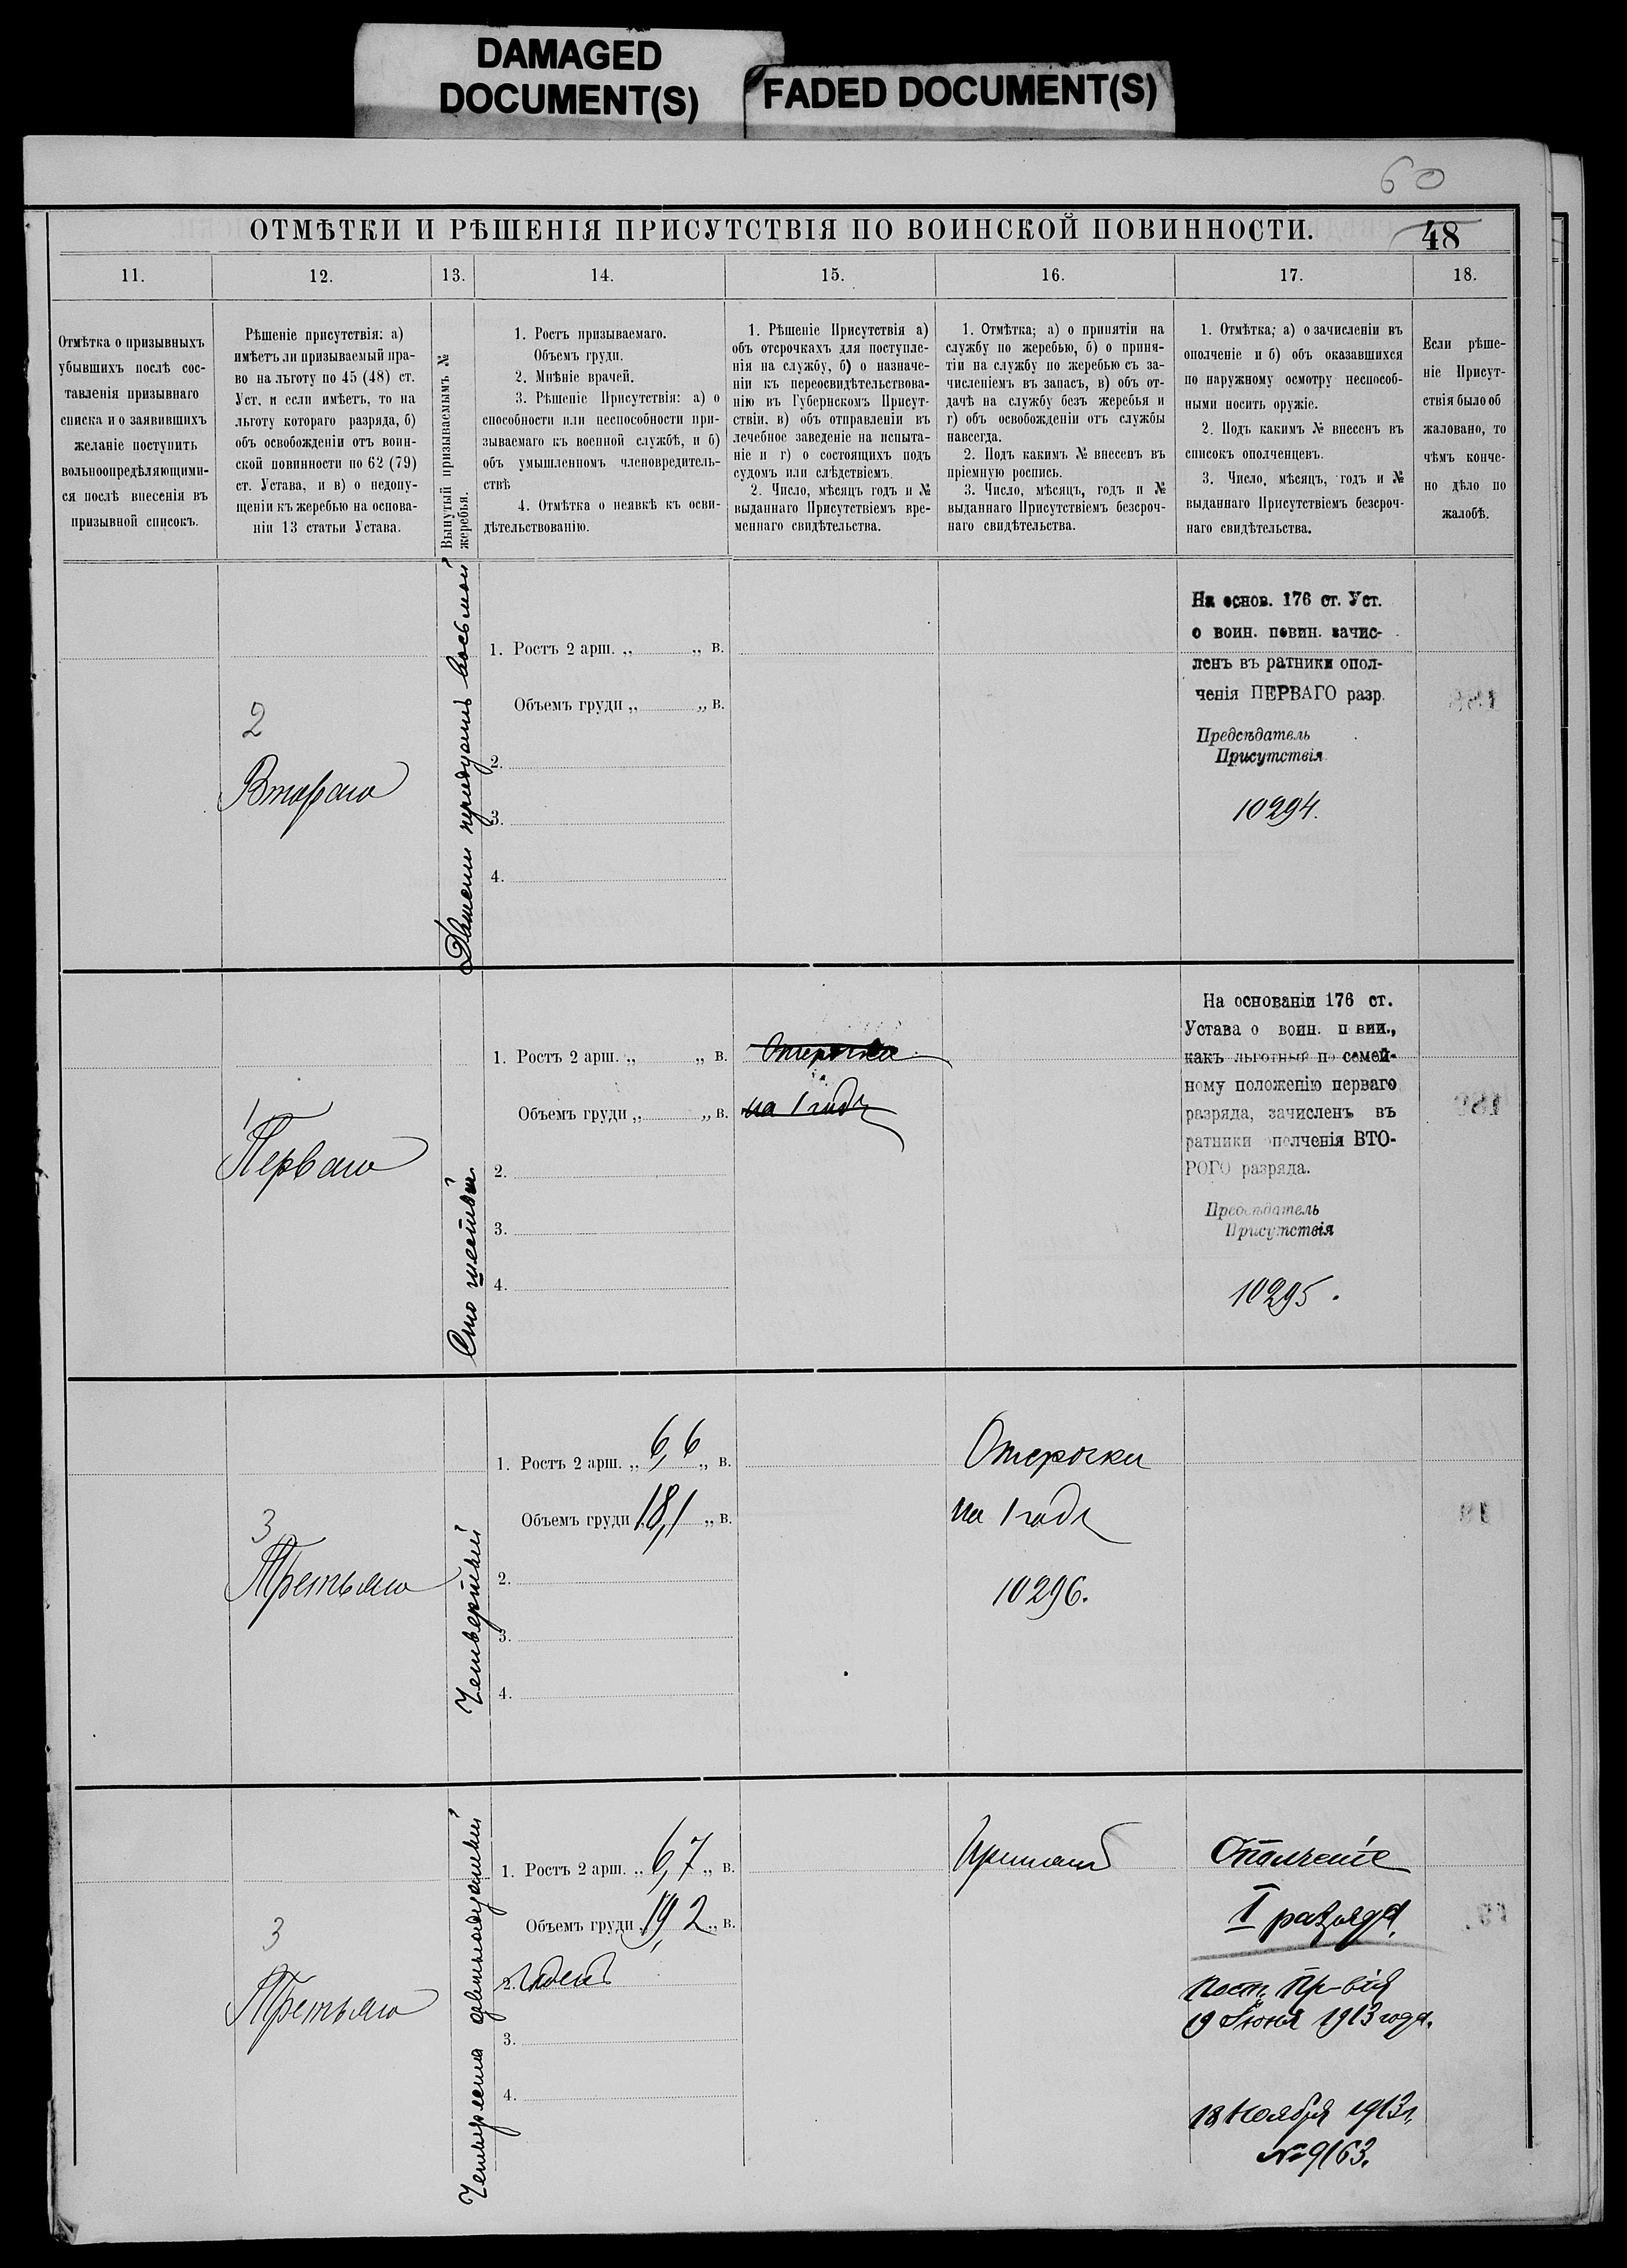 DAMAGED
DOCUMENT(S)
FADED DOCUMENT(S)
60
ОТМѢТКИ И РѢШЕНІЯ ПРИСУТСТВІЯ ПО ВОИНСКОЙ ПОВИННОСТИ.
48
11.
12.
13.
14.
15.
16.
17.
18.
Отмѣтка о призывныхъ
убывшихъ послѣ сос-
тавленія призывнаго
списка и о заявившихъ
желаніе поступить
вольноопредѣляющими-
ся послѣ внесенія въ
призывной списокъ.
Рѣшеніе присутствія: а)
имѣетъ ли призываемый пра-
во на льготу по 45 (48) ст.
Уст. и если имѣетъ, то на
льготу котораго разряда, б)
объ освобожденіи отъ воин-
ской повинности по 62 (79)
ст. Устава, и в) о недопу-
щеніи къ жеребью на основа-
ніи 13 статьи Устава.
Вынутый призываемымъ №
жеребья.
1. Ростъ призываемаго.
Объемъ груди.
2. Мнѣніе врачей.
3. Рѣшеніе Присутствія: а) о
способности или неспособности при-
зываемаго къ военной службѣ, и б)
объ умышленномъ членовредитель-
ствѣ
4. Отмѣтка о неявкѣ къ осви-
дѣтельствованію.
1. Рѣшеніе Присутствія а)
объ отсрочкахъ для поступле-
нія на службу, б) о назначе-
ніи къ переосвидѣтельствова-
нію въ Губернскомъ Присут-
ствіи, в) объ отправленіи въ
лечебное заведеніе на испыта-
ніе и г) о состоящихъ подъ
судомъ или слѣдствіемъ.
2. Число, мѣсяцъ годъ и №
выданнаго Присутствіемъ вре-
меннаго свидѣтельства.
1. Отмѣтка; а) о принятіи на
службу по жеребью, б) о приня-
тіи на службу по жеребью съ за-
численіемъ въ запасъ, в) объ от-
дачѣ на службу безъ жеребья и
г) объ освобожденіи отъ службы
навсегда.
2. Подъ какимъ № внесенъ въ
пріемную роспись.
3. Число, мѣсяцъ, годъ и №
выданнаго Присутствіемъ безсроч-
наго свидѣтельства.
1. Отмѣтка; а) о зачисленіи въ
ополченіе и б) объ оказавшихся
по наружному осмотру неспособ-
ными носить оружіе.
2. Подъ какимъ № внесенъ въ
списокъ ополченцевъ.
3. Число, мѣсяцъ, годъ и №
выданнаго Присутствіемъ безсроч-
наго свидѣтельства.
Если рѣше-
ніе Присут-
ствія было об
жаловано, то
чѣмъ конче-
но дѣло по
жалобѣ.
2
Втораго
Двѣсти тридцать восьмой
1. Ростъ 2 арш. „ „ в.
Объемъ груди „ „ в.
2.
3.
4.
На основ. 176 ст. Уст.
о воин. повин. зачис-
ленъ въ ратники опол-
ченія ПЕРВАГО разр.
Предсѣдатель
Присутствія
10294.
1
Перваго
Сто шестой
1. Ростъ 2 арш. „ „ в.
Объемъ груди „ „ в.
2.
3.
4.
Отсрочка
на 1 годъ
На основаніи 176 ст.
Устава о воин. п вин.,
какъ льготный по семей-
ному положенію перваго
разряда, зачисленъ въ
ратники ополченія ВТО-
РОГО разряда.
Предсѣдатель
Присутствія
10295.
3
Третьяго
Четвертый
1. Ростъ 2 арш. „ 6,6 „ в.
Объемъ груди 18,1 „ в.
2.
3.
4.
Отсрочки
на 1 годъ
10296.
3
Третьяго
Четыреста девятнадцатый
1. Ростъ 2 арш. „ 6,7 „ в.
Объемъ груди „ 19,2 „ в.
2. Годенъ
3.
4.
Принятъ
Ополченіе
I разряда.
Пост. Пр-вія
19 Іюня 1913 года.
18 Ноября 1913 г.
№ 9163.